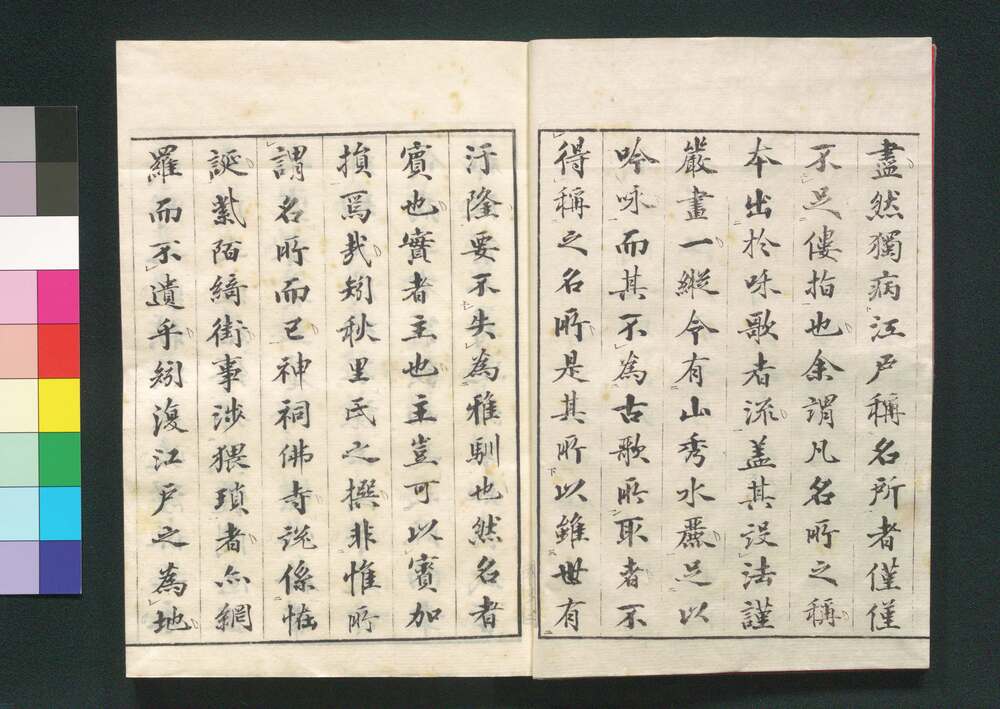 盡然獨病江戸稱名所者僅僅
不足僂指也余謂凡名所之稱
本出於咏歌者流盖其設法謹
嚴畫一縱令有山秀水麗足以
吟咏而其不為古歌所取者不
得稱之名所是其所以雖世有
汙隆要不失為雅馴也然名者
賓也實者主也主豈可以賓加
損焉哉矧秋里氏之撰非惟所
謂名所而已神祠佛寺説係恠
誕紫陌綺街事渉猥瑣者亦網
羅而不遺乎矧復江戸之為地